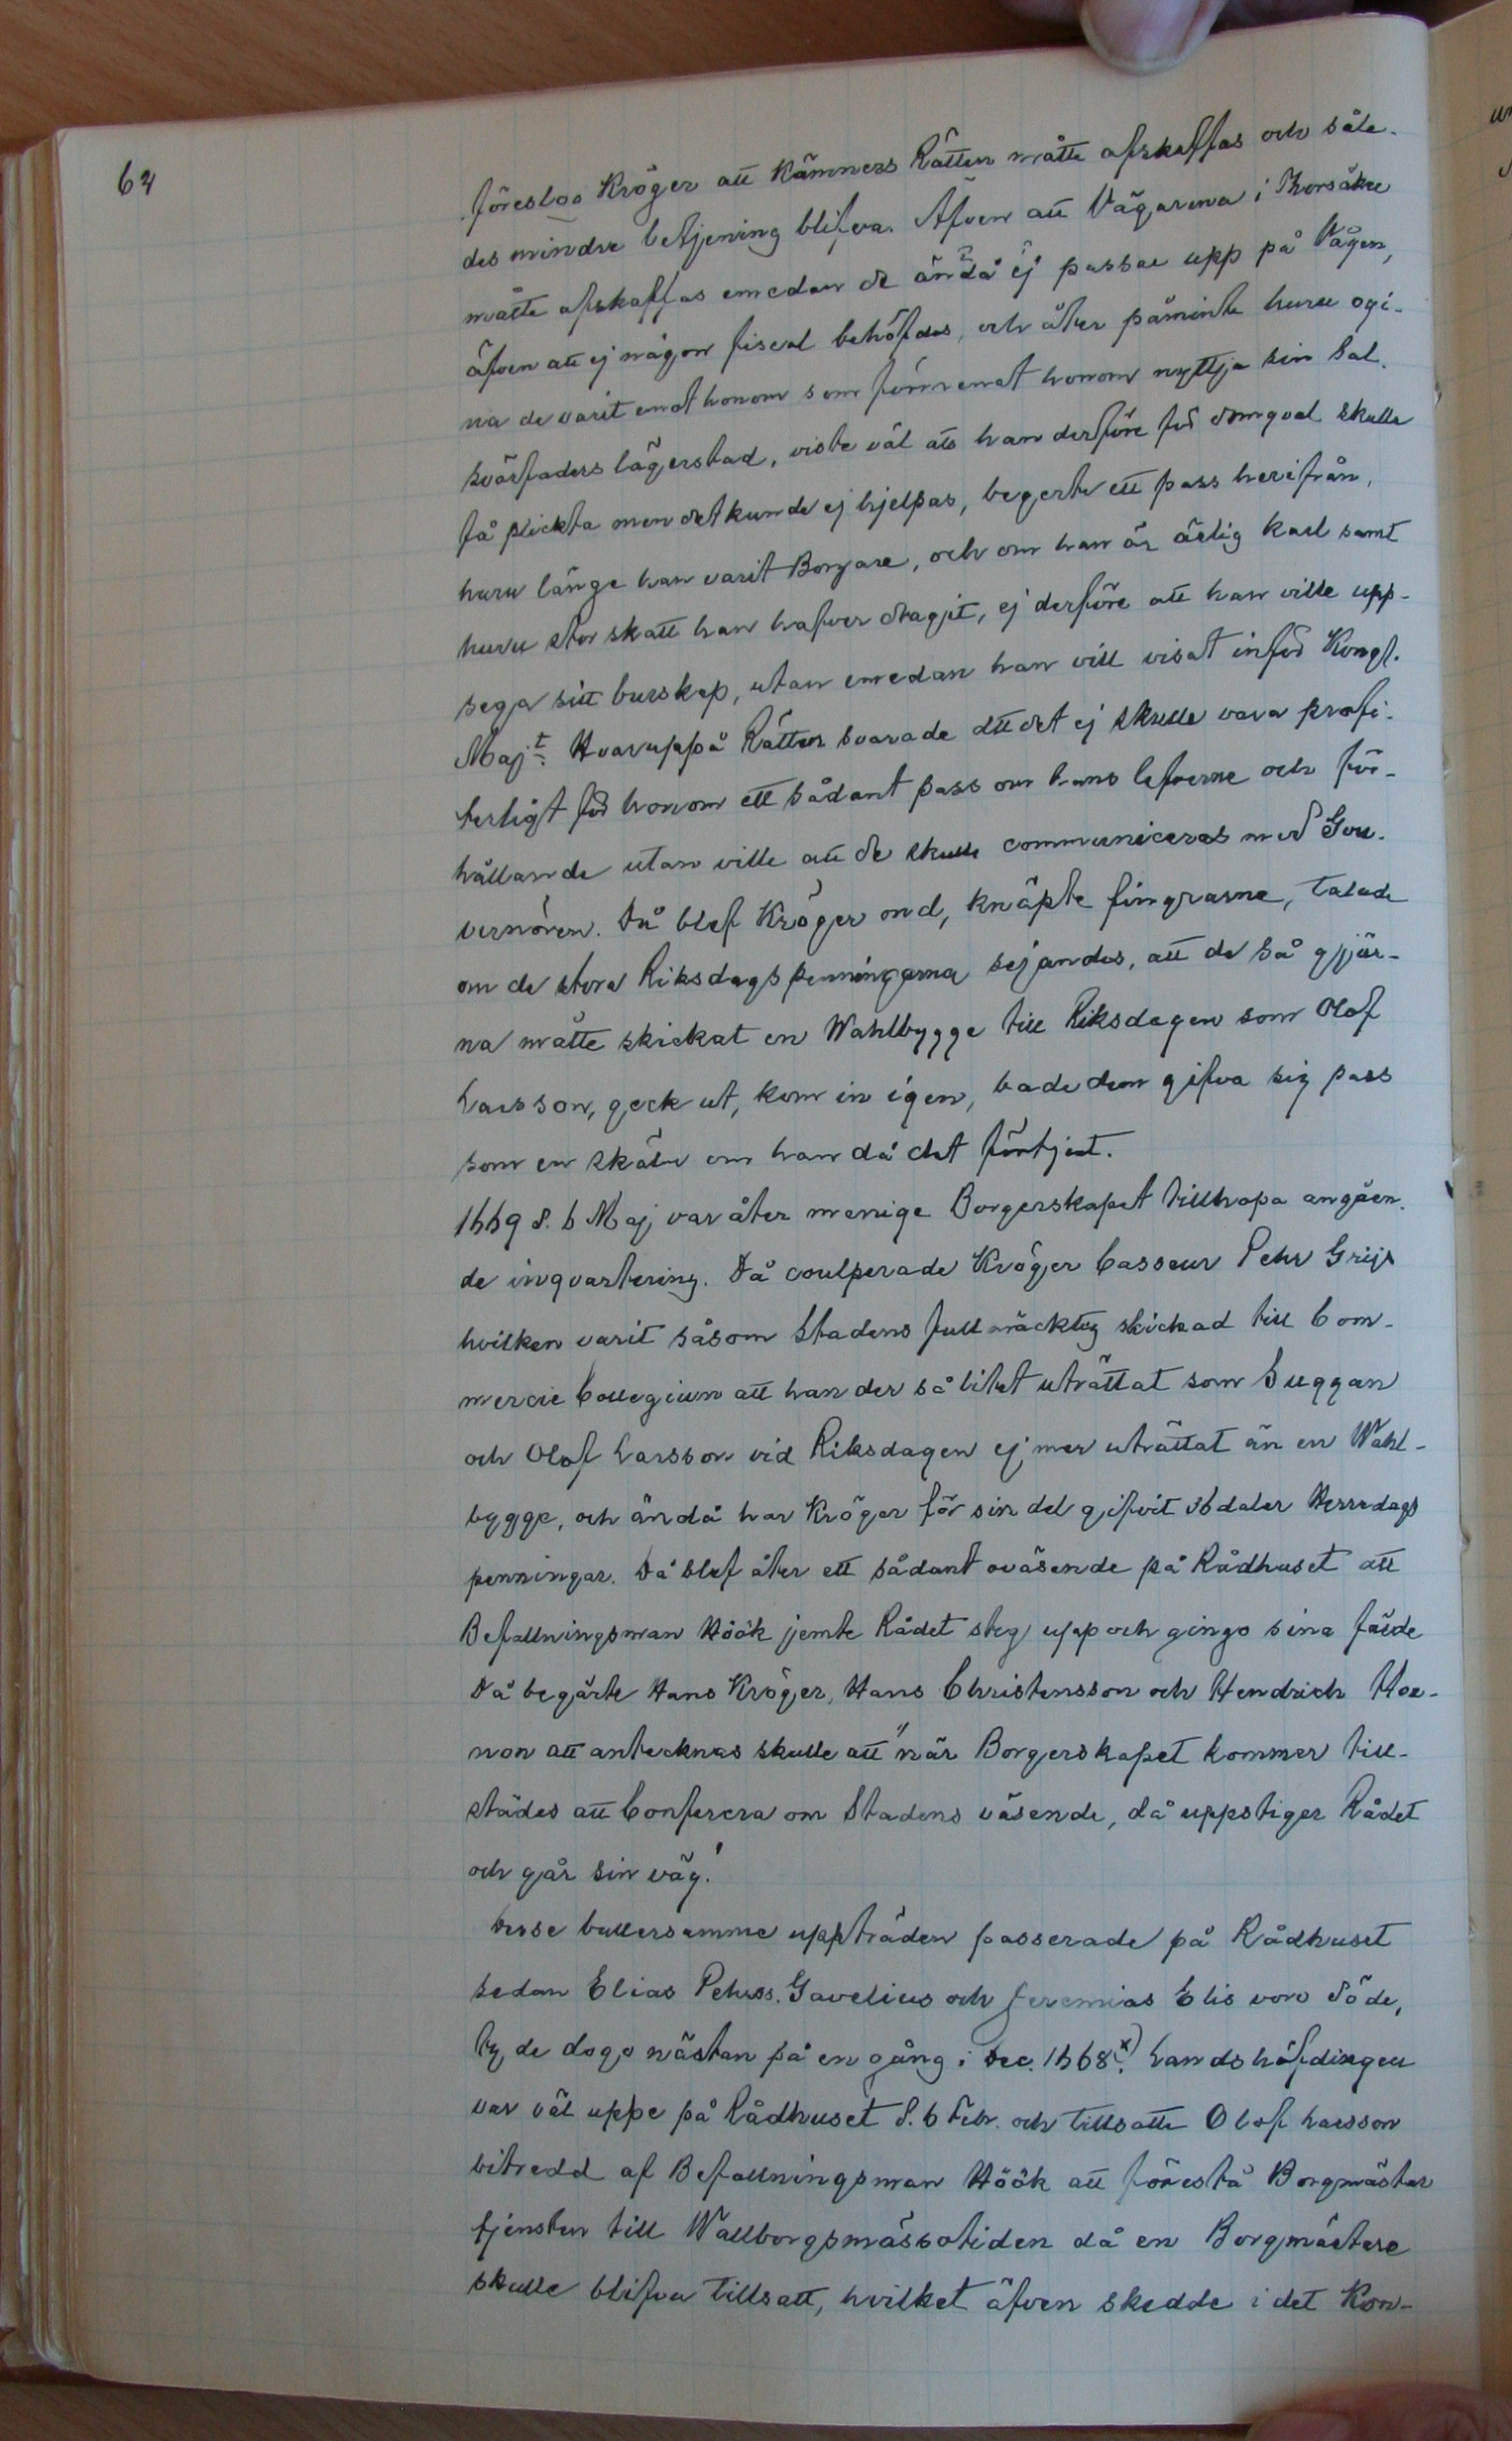 64
föreslog Kröger att Kämners Rätten måtte afskaffas och såle-
des mindre betjening blifva. Äfven att Vågarena i Thorsåkre
måtte afskaffas emedan de ändå ej passae upp på Vågen,
äfven att ej någon fiscal behöfdes, och åter påminte huru ogi-
na de varit emot honom som förmenat honom nyttja sin Sal.
svärfaders lägerstad, viste väl att han derföre för domqval skulle
få plickta men det kunde ej hjelpas, begerte ett pass herifrån,
huru länge han varit Borgare, och om han är ärlig karl samt
huru stor skatt han hafver dragit, ej derföre att han ville upp-
sega sitt burskap, utan emedan han vill visat inför Kongl.
Majt. Hvaruppå Rätten svarade att det ej skulle vara profi-
terligt för honom ett sådant pass om hans lefverne och för-
hållande utan ville att de skulle communiceras med Gou-
vernören. Då blef Kröger ond, knäpte fingrarne, talade
om de stora Riksdagspenningarna sejandes, att de så gjär-
na måtte skickat en Wahlbygge till Riksdagen som Olof
Larsson, geck ut, kom in igen, bade dem gifva sig pass
som en skälm om han då det förtjent.
1669 d. 6 Maj var åter menige Borgerskapet tillhopa angåen-
de inqvartering. Då coulperade Kröger Casseur Pehr Grijs
hvilken varit såsom Stadens fullmäcktig skickad till Com-
mercie Collegium att han der så litet uträttat som Suggan
och Olof Larsson vid Riksdagen ej mer uträttat än en Wahl-
bygge, och ändå har Kröger för sin del gifvit 36 daler Herredags
penningar. Då blef åter ett sådant oväsende på Rådhuset att
Befallningsman Höök jemte Rådet steg upp och gingo sina färde
Då begärte Hans Kröger, Hans Christensson och Hendrich Hoe-
non att antecknas skulle att "när Borgerskapet kommer till-
städes att Conferera om Stadens väsende, då uppstiger Rådet
och går sin väg!
Desse bullersamme uppträden passerade på Rådhuset
sedan Elias Pehrss. Gavelius och Jeremias Elis voro döde,
ty de dogo nästan på en gång i Dec. 1668.x) Landshöfdingen
var väl uppe på Rådhuset d. 6 Febr. och tillsatte Olof Larsson
biträdd af Befallningsman Höök att förestå Borgmästar
tjensten till Wallborgsmässotiden då en Borgmästare
skulle blifva tillsatt, hvilket äfven skedde i det Kon-